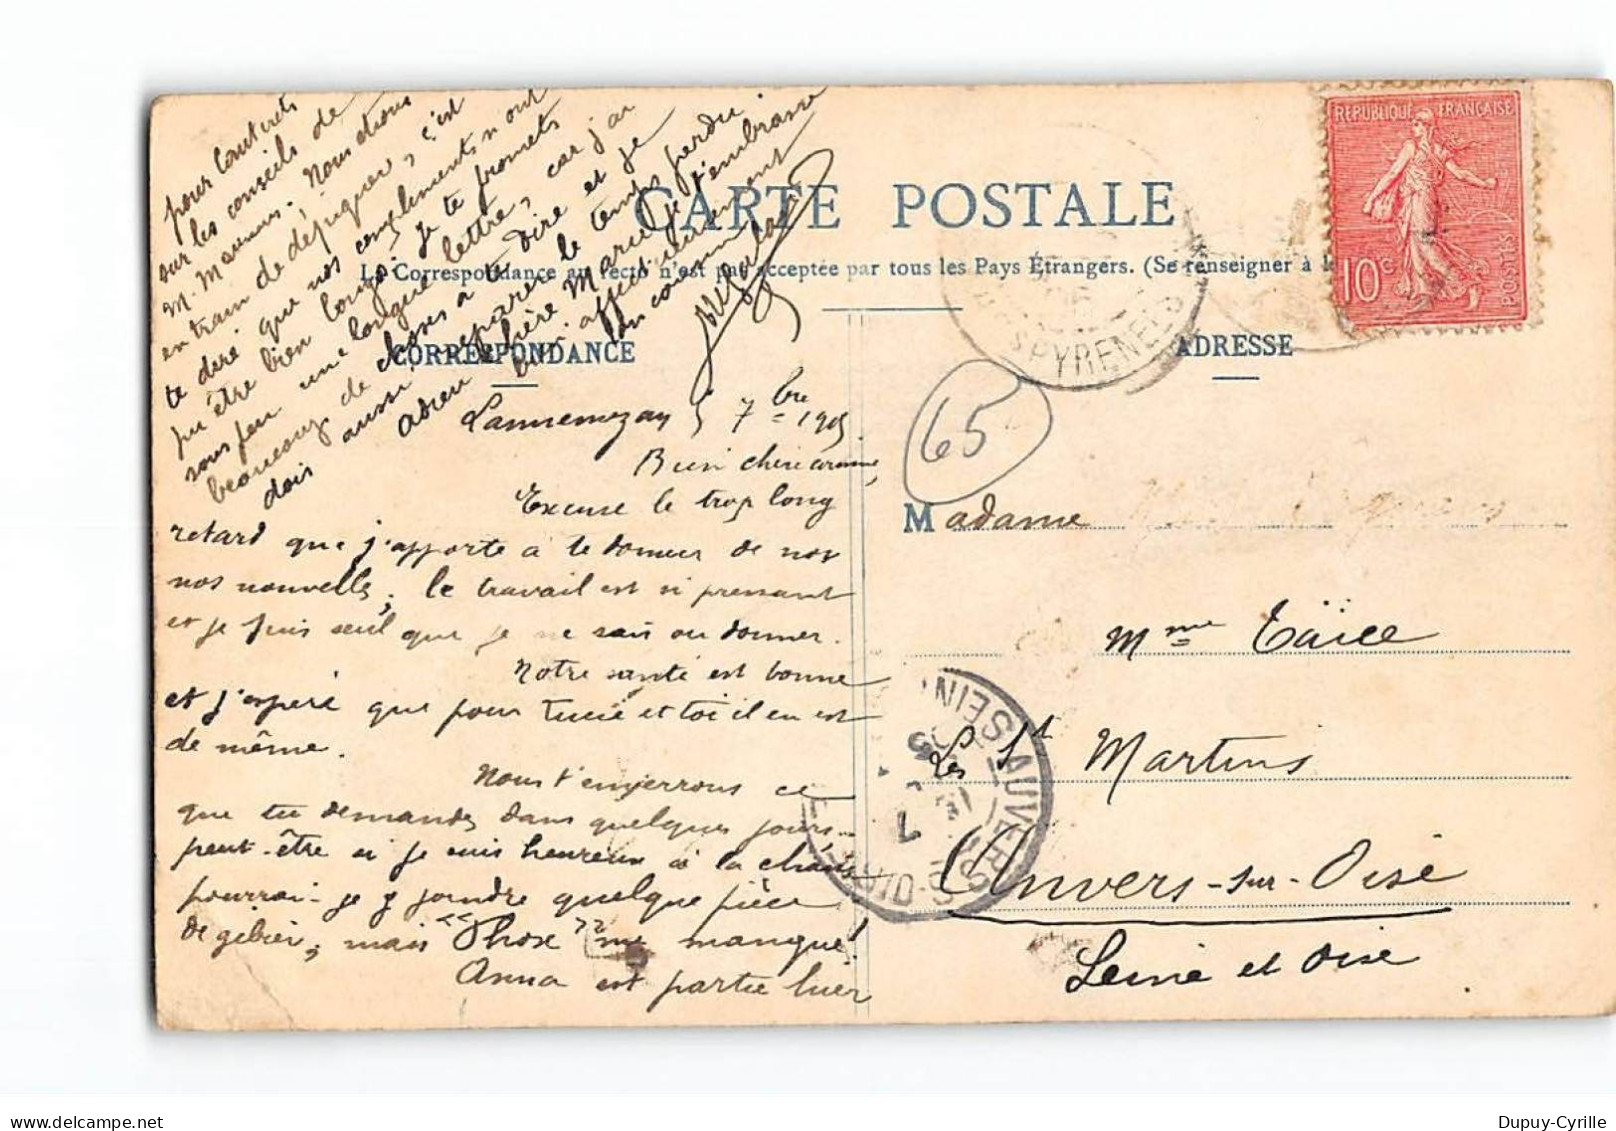 RÉPUBLIQUE FRANÇAISE
10c
POSTES
CARTE POSTALE
La Correspondance au recto n'est pas acceptée par tous les Pays Étrangers. (Se renseigner à la
CORRESPONDANCE
ADRESSE
Lannemezan 5 7bre 1905
Bien chère
Excuse le trop long
retard que j'apporte à te donner de nos
nos nouvelles, le travail est si pressant
et je suis seul que je ne sais où donner.
Notre santé est bonne
et j'espère que pour Lucie et toi il en est
de même.
Nous t'enverrons ce
que tu demandes dans quelques jours
peut-être si je suis heureux à la chasse
pourrai-je y joindre quelque pièce
de gibier, mais "Phox" me manque!
Anna est partie hier
pour Cauterets
sur les conseils de
M. Nous étions
en train de dépiquer, c'est
te dire que nos compliments n'ont
pu être bien longs. Je te promets
sous peu une longue lettre, car j'ai
beaucoup de choses à te dire et je
dois aussi réparer le temps perdu.
Adieu chère Marie je t'embrasse
bien affectueusement
Ton cousin
65
Madame
Mme Taïce
Les St Martins
Anvers-sur-Oise
Seine et Oise
PYRENEES
AUVERS-S-OISE
SEINE